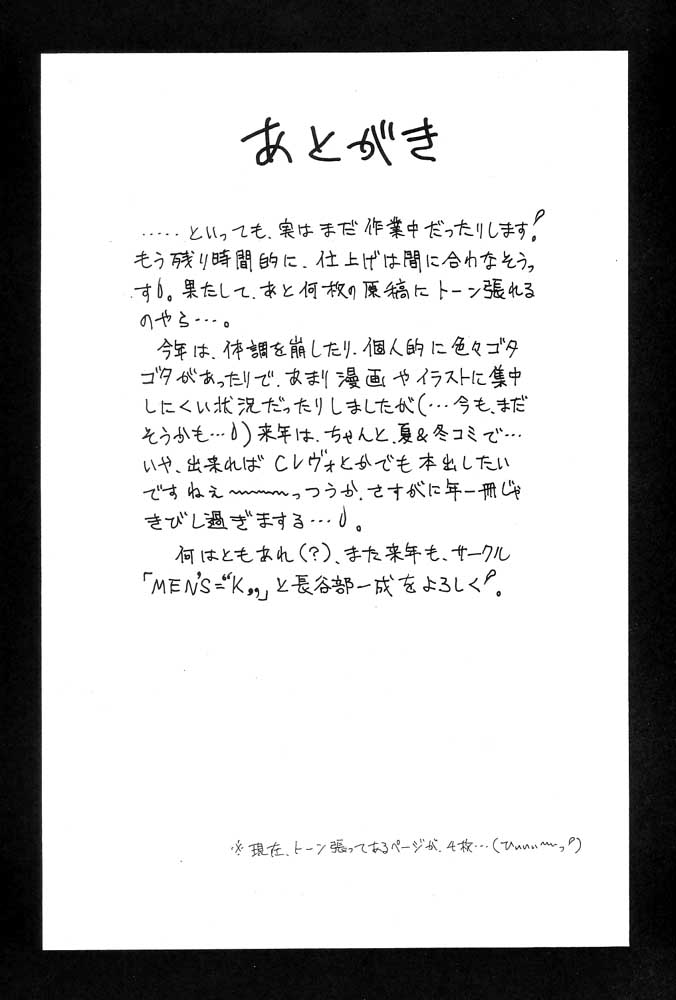 あとがき
‥‥‥といっても、実はまだ作業中だったりします!
もう残り時間的に、仕上げは間に合わなそうっ
す。果たして、あと何枚の原稿にトーン張れる
のやら…。
今年は、体調を崩したり、個人的に色々ゴタ
ゴタがあったりで、あまり漫画やイラストに集中
しにくい状況だったりしましたが(…今も、まだ
そうかも…)来年は、ちゃんと、夏&冬コミで…
いや、出来ればCレヴォとかでも本出したい
ですねぇ〜〜〜っつうか、さすがに年一冊じゃ
きびし過ぎまする…。
何はともあれ(?)、また来年も、サークル
「MEN'S="K„」と長谷部一成をよろしく!。
※現在、トーン張ってあるページが、4枚…(ひぃぃぃ〜っ!)